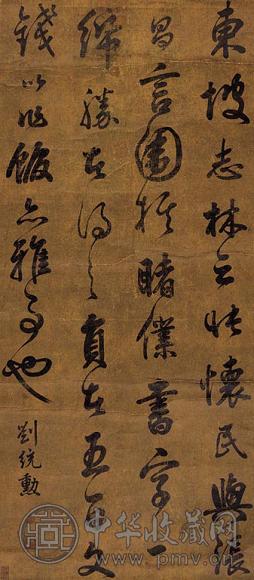 東坡志林云張懷民與張
昌言圍棋賭僕書字一
紙勝者得之負者五百文
錢以作飯亦雅事也
劉統勳
中华收藏网
www.pmv.cn